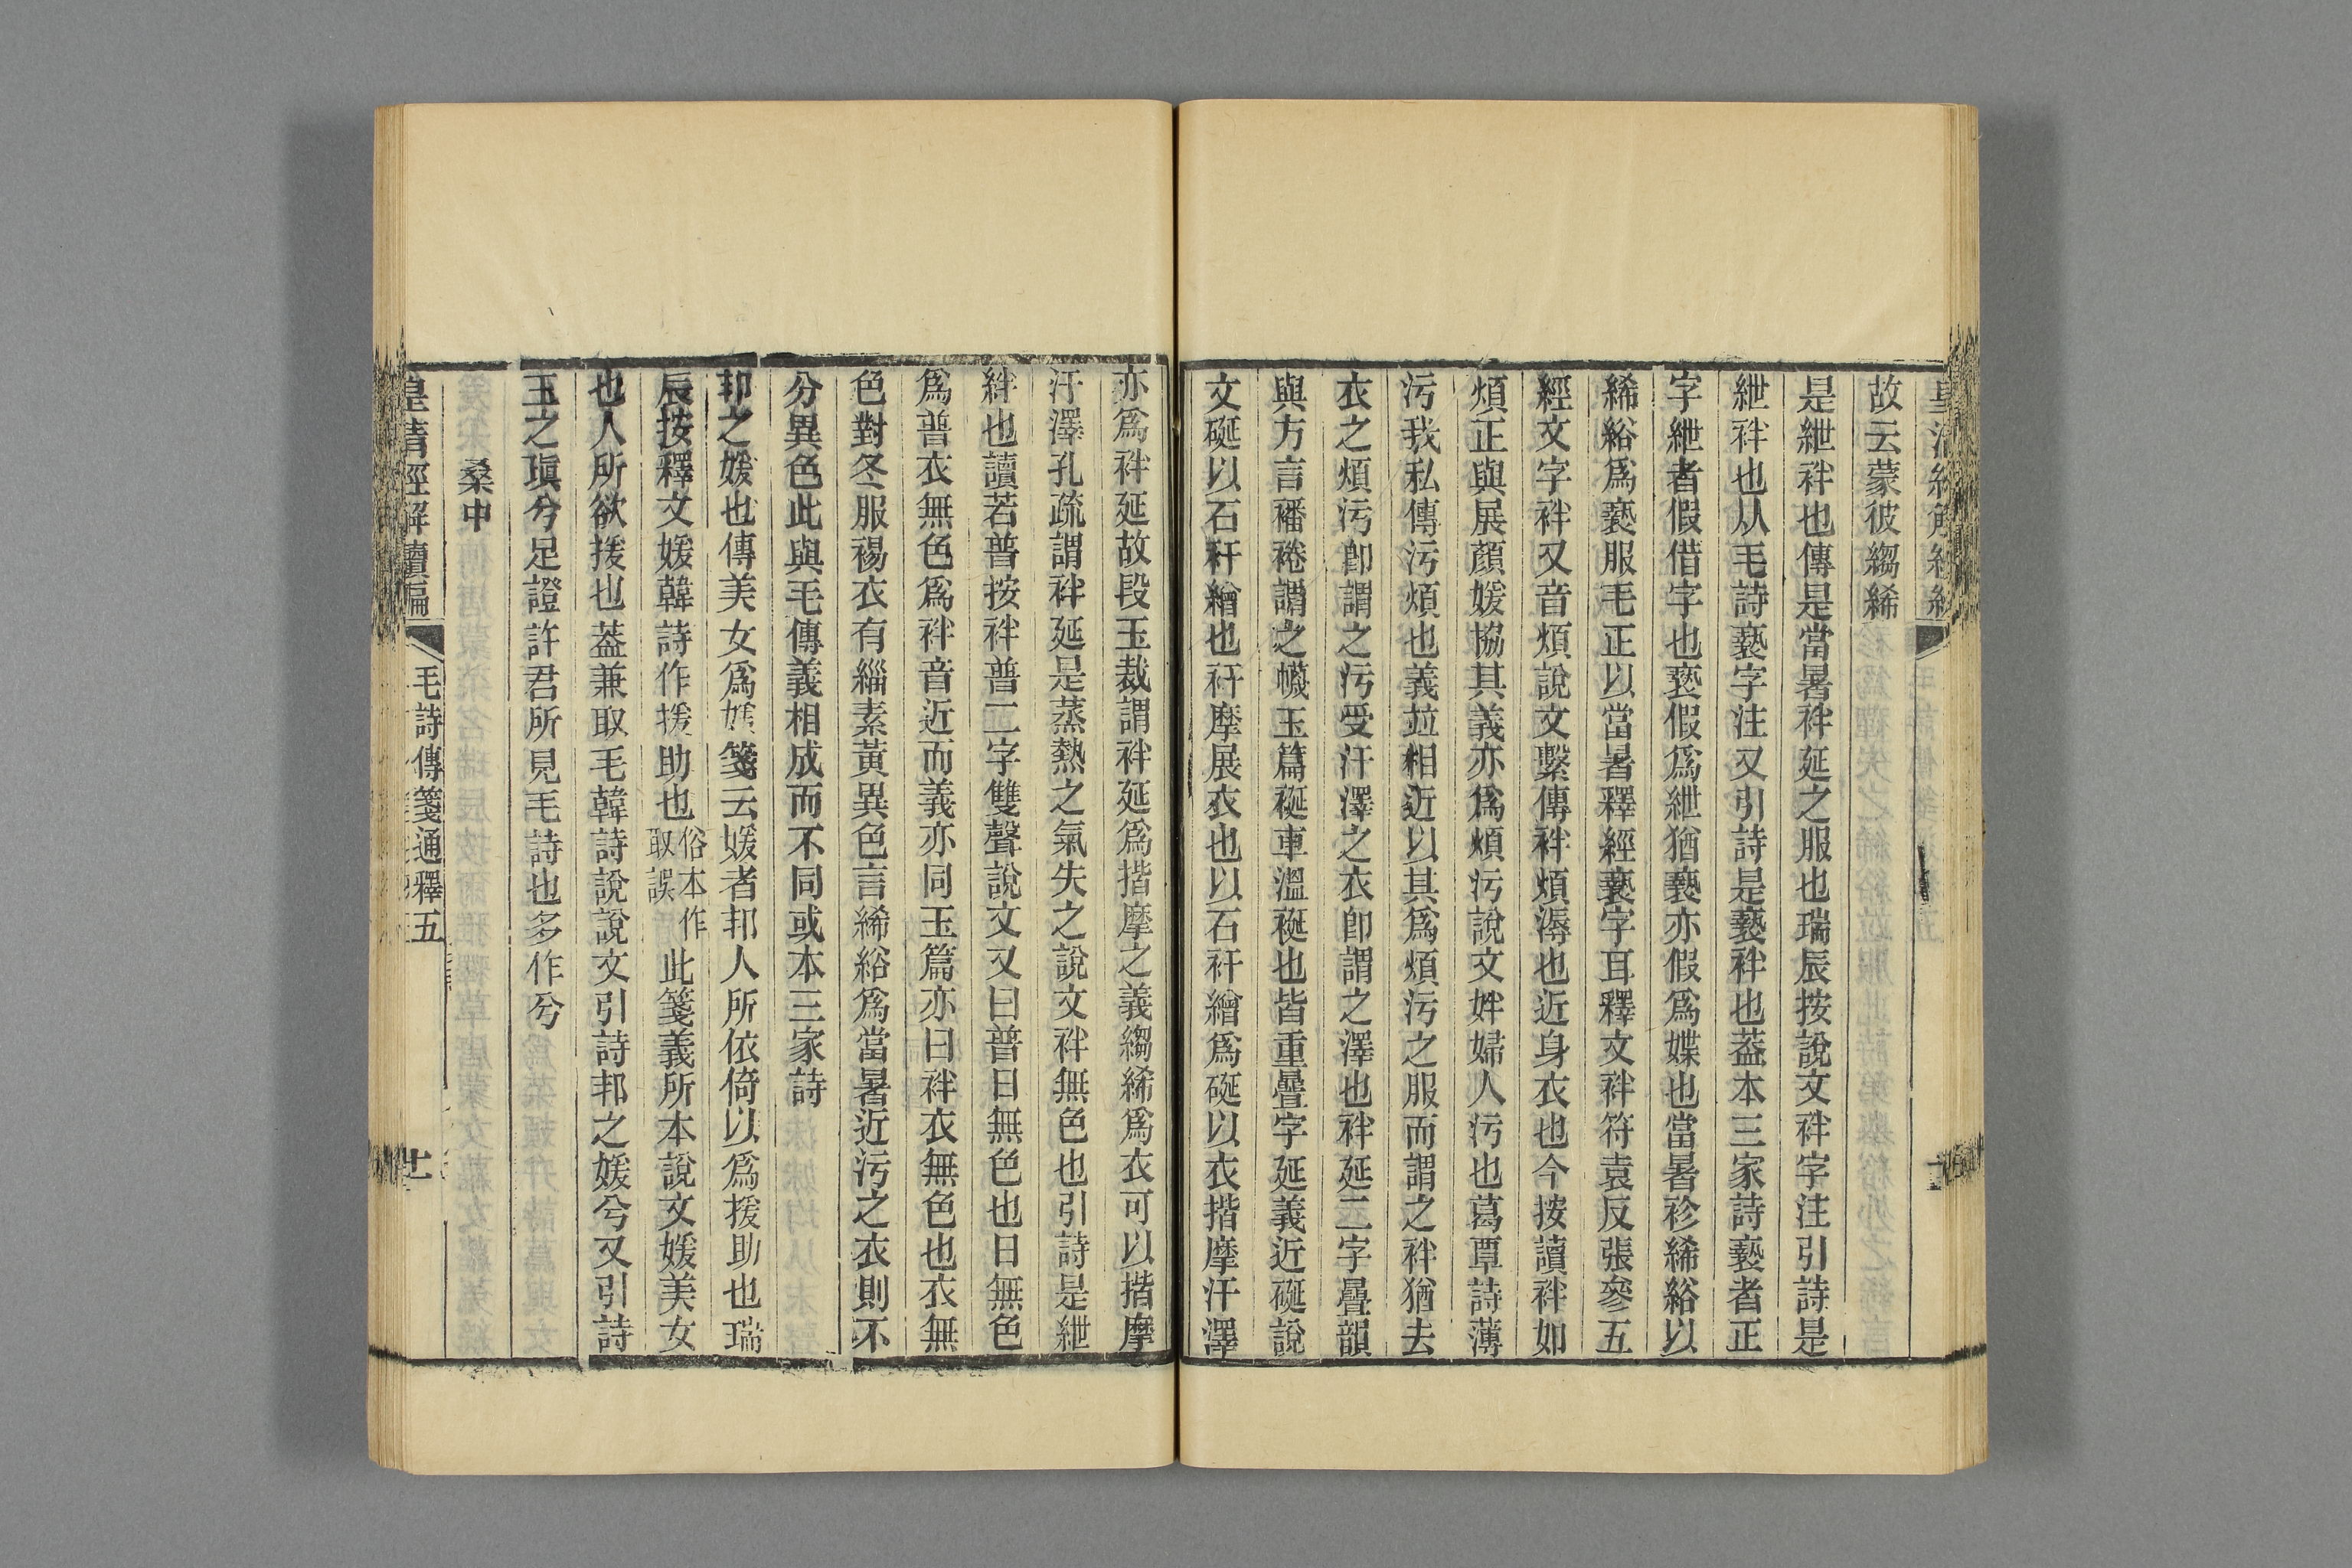 故云蒙彼縐絺
是紲袢也傳是當暑袢延之服也瑞辰按說文袢字注引詩是
紲袢也从毛詩褻字注又引詩是褻袢也葢本三家詩褻者正
字紲者假借字也褻假爲紲猶褻亦假爲媟也當暑袗絺綌以
絺綌爲褻服毛正以當暑釋經褻字耳釋文袢符袁反張參五
經文字袢又音煩說文繫傳袢煩溽也近身衣也今按讀袢如
煩正與展顏媛協其義亦爲煩污說文姅婦人污也葛覃詩薄
污我私傳污煩也義竝相近以其爲煩污之服而謂之袢猶去
衣之煩污卽謂之污受汗澤之衣卽謂之澤也袢延二字疊韻
與方言襎裷謂之幭玉篇裷車溫裷也皆重疊字延義近硟說
文硟以石衦繒也衦摩展衣也以石衦繒爲硟以衣揩摩汗澤
亦爲袢延故段玉裁謂袢延爲揩摩之義縐絺爲衣可以揩摩
汗澤孔疏謂袢延是蒸熱之氣失之說文袢無色也引詩是紲
絆也讀若普按袢普二字雙聲說文又曰普日無色也日無色
爲普衣無色爲袢音近而義亦同玉篇亦曰袢衣無色也衣無
色對冬服裼衣有緇素黃異色言絺綌爲當暑近污之衣則不
分異色此與毛傳義相成而不同或本三家詩
邦之媛也傳美女爲媛箋云媛者邦人所依倚以爲援助也瑞
辰按釋文媛韓詩作援助也俗本作取誤此箋義所本說文媛美女
也人所欲援也葢兼取毛韓詩說說文引詩邦之媛兮又引詩
玉之瑱兮足證許君所見毛詩也多作兮
桑中
皇清經解續編 毛詩傳箋通釋五